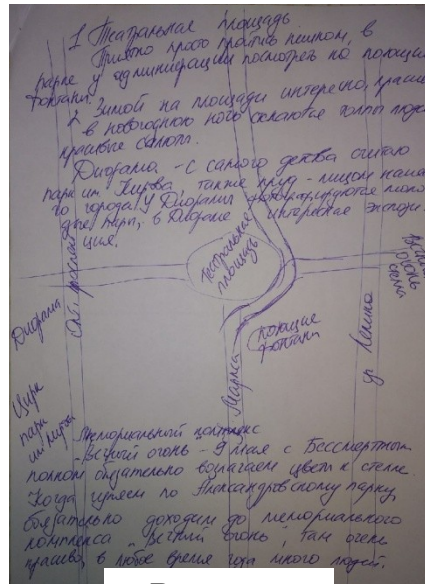 1 Театральная площадь
Приятно просто пройтись пешком, в
парке у администрации посмотреть на поющие
фонтаны.
2 Зимой на площади интересно, краси
в новогоднюю ночь толпы люде
красивые салюты.
Диорама - с самого детства считаю
парк им. Кирова, также пруд - лицом наше
го города. У Диорамы фотографируются моло
дые пары, в Диораме интересные экспози
ция.
Театральная
площадь
огонь
Диорама
поющие
фонтаны
Маркса
пр Ленина
Цирк
парк
им Кирова
Мемориальный комплекс
- Вечный огонь - 9 мая с Бессмертным
полком обязательно возлагаем цветы к стелле
Когда гуляем по Александровскому парку,
обязательно доходим до мемориального
комплекса "Вечный огонь", там очень
красиво, в любое время года много людей.